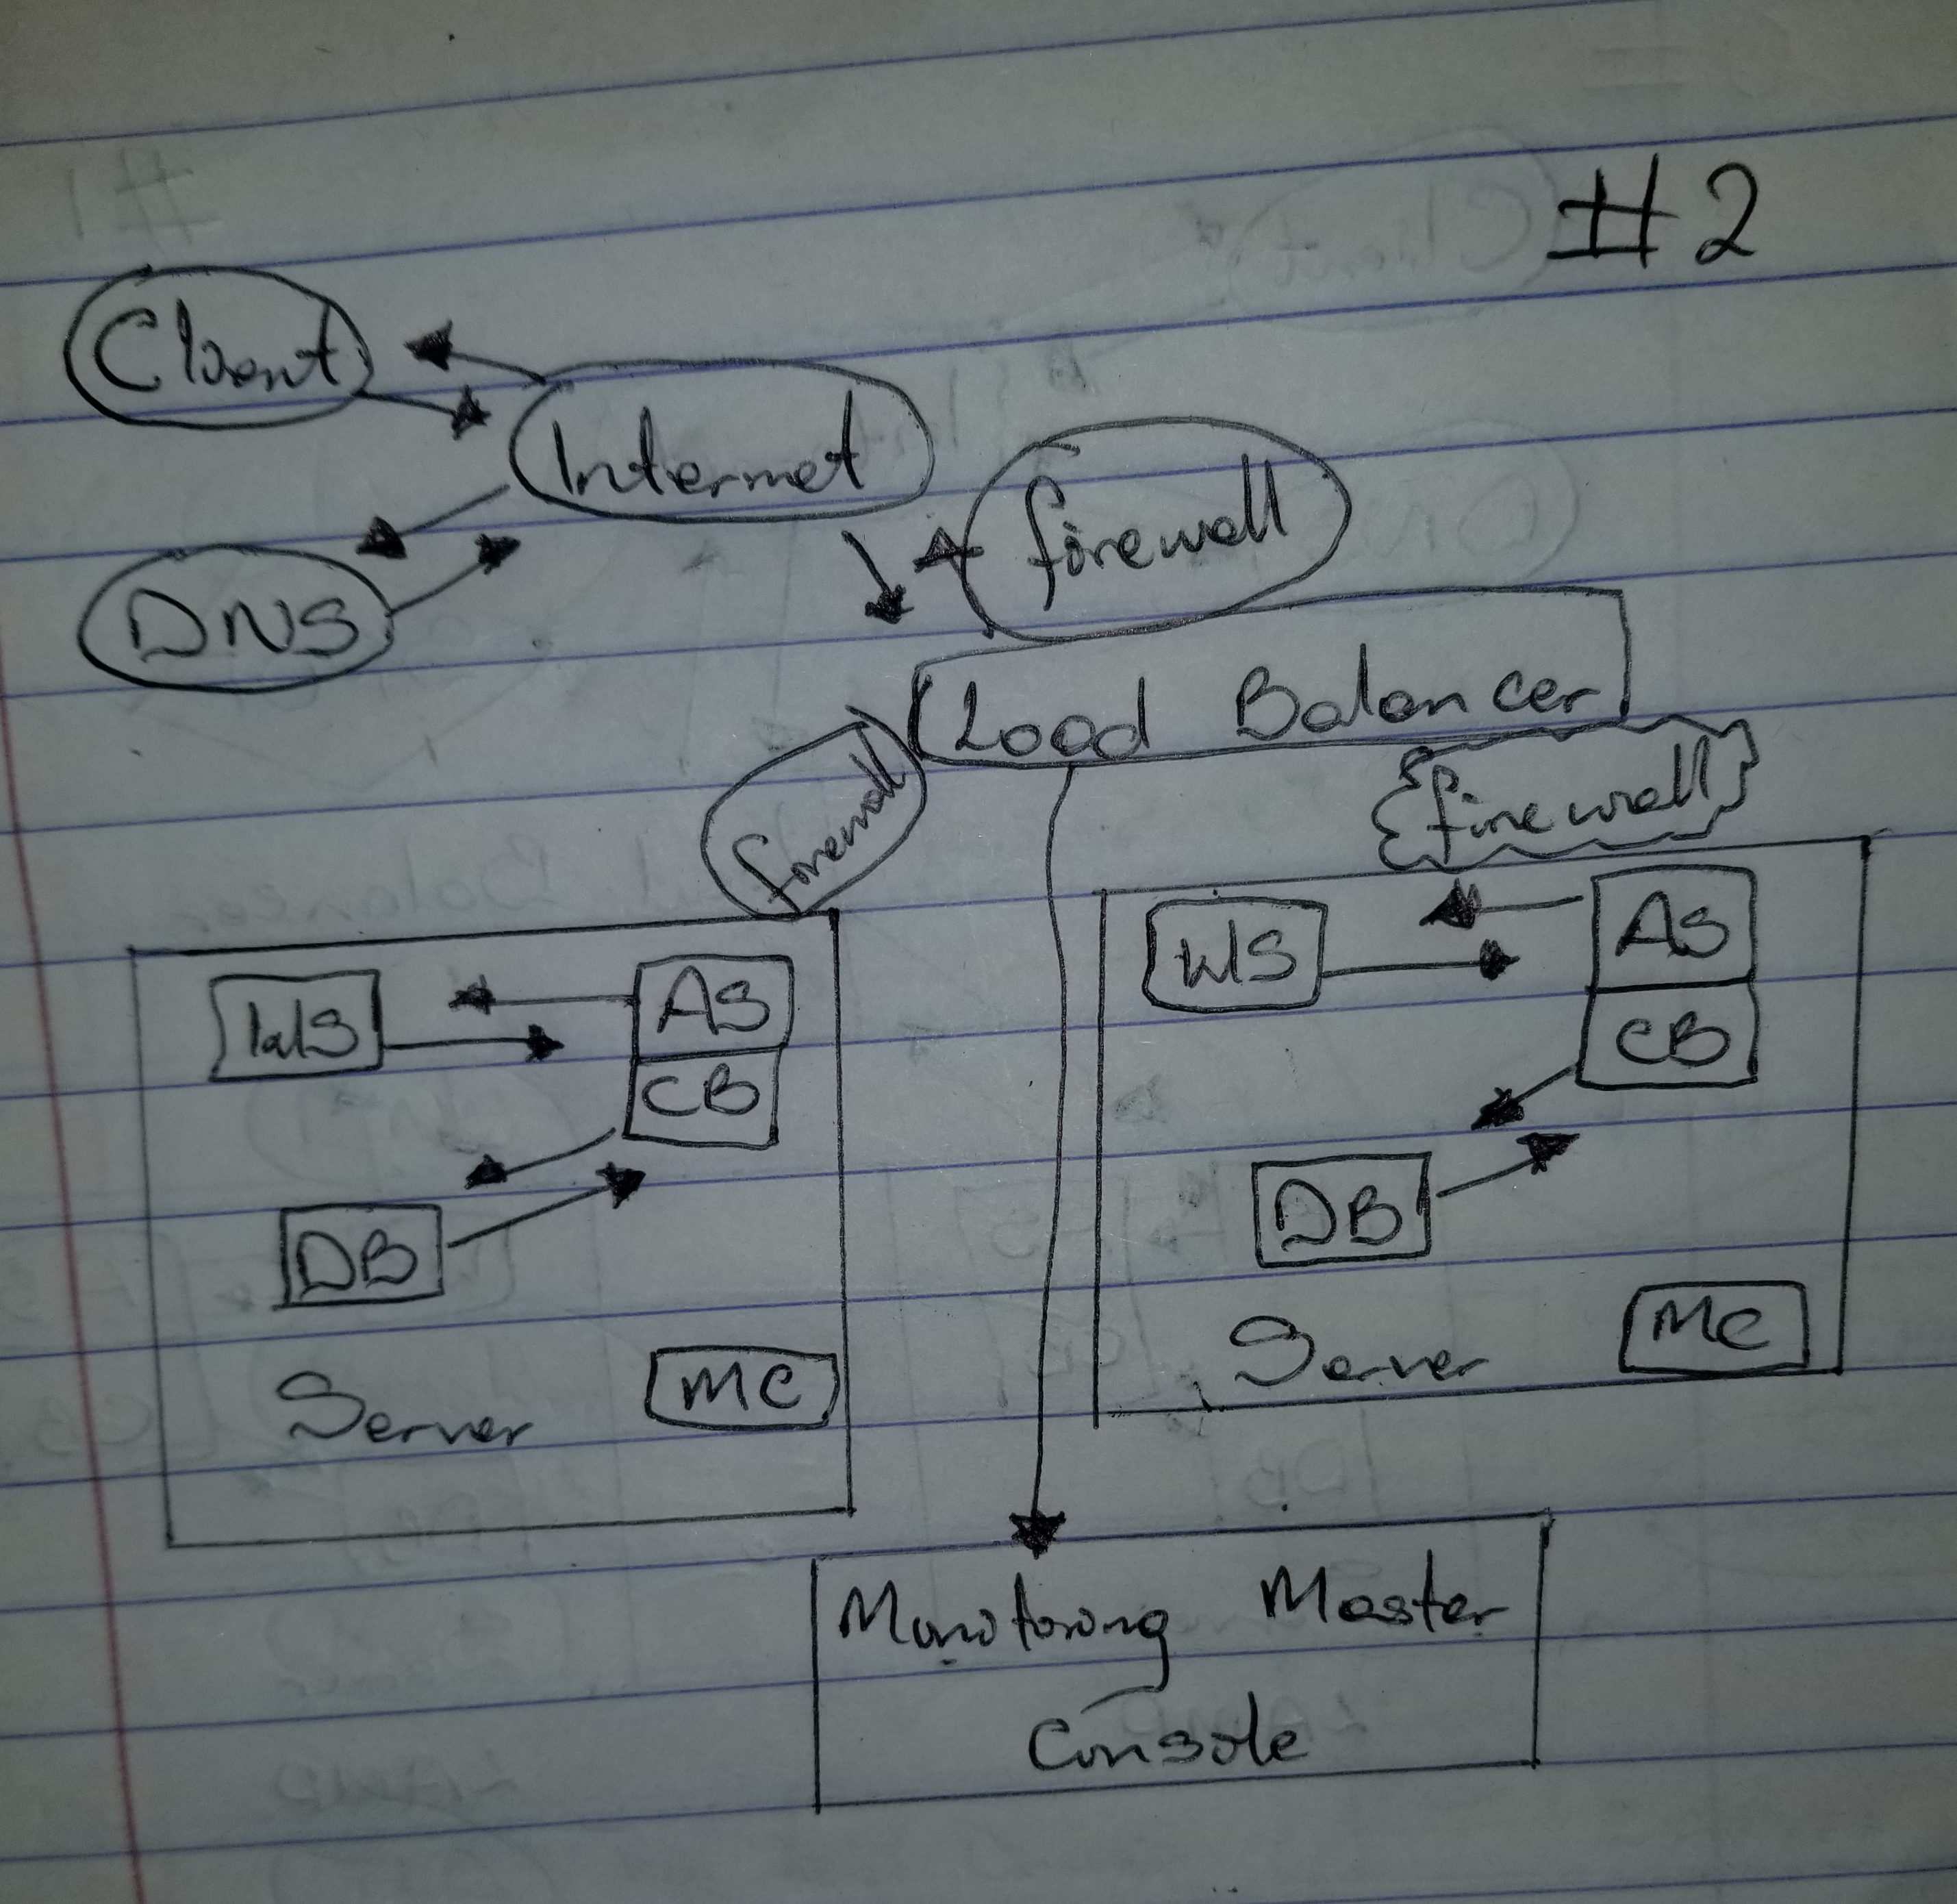 #2
Client
Internet
firewall
DNS
Load Balancer
firewall
firewall
WS
AS
CB
DB
Server
MC
WS
AS
CB
DB
Server
MC
Monitoring Master
Console